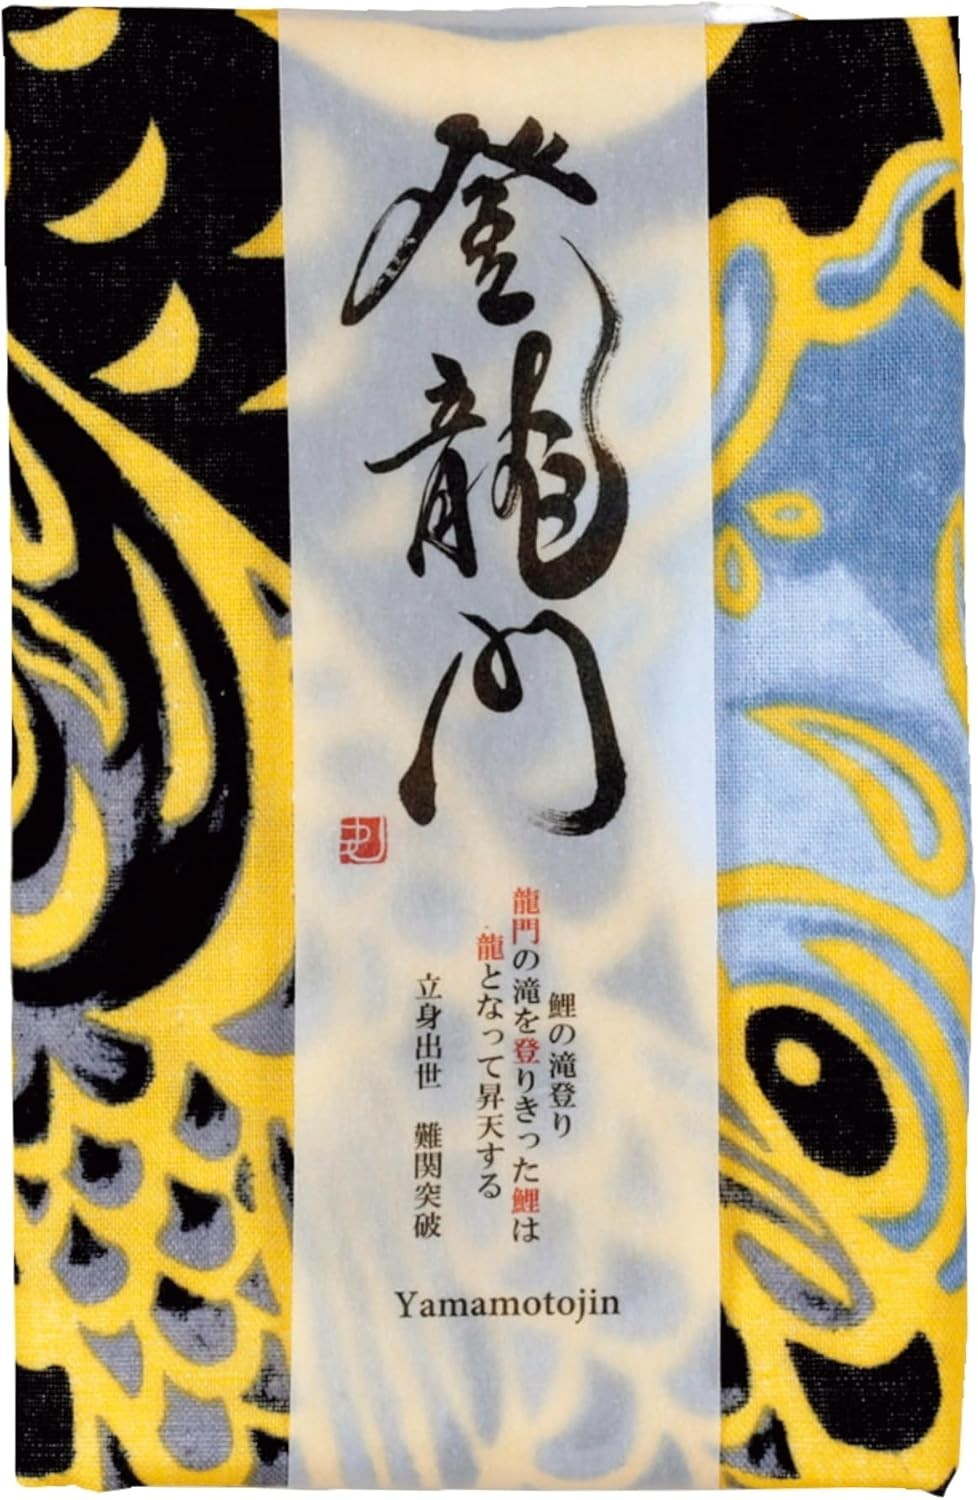 登龍門
鯉の滝登り
龍門の滝を登りきった鯉は
龍となって昇天する
立身出世　難関突破
Yamamotojin